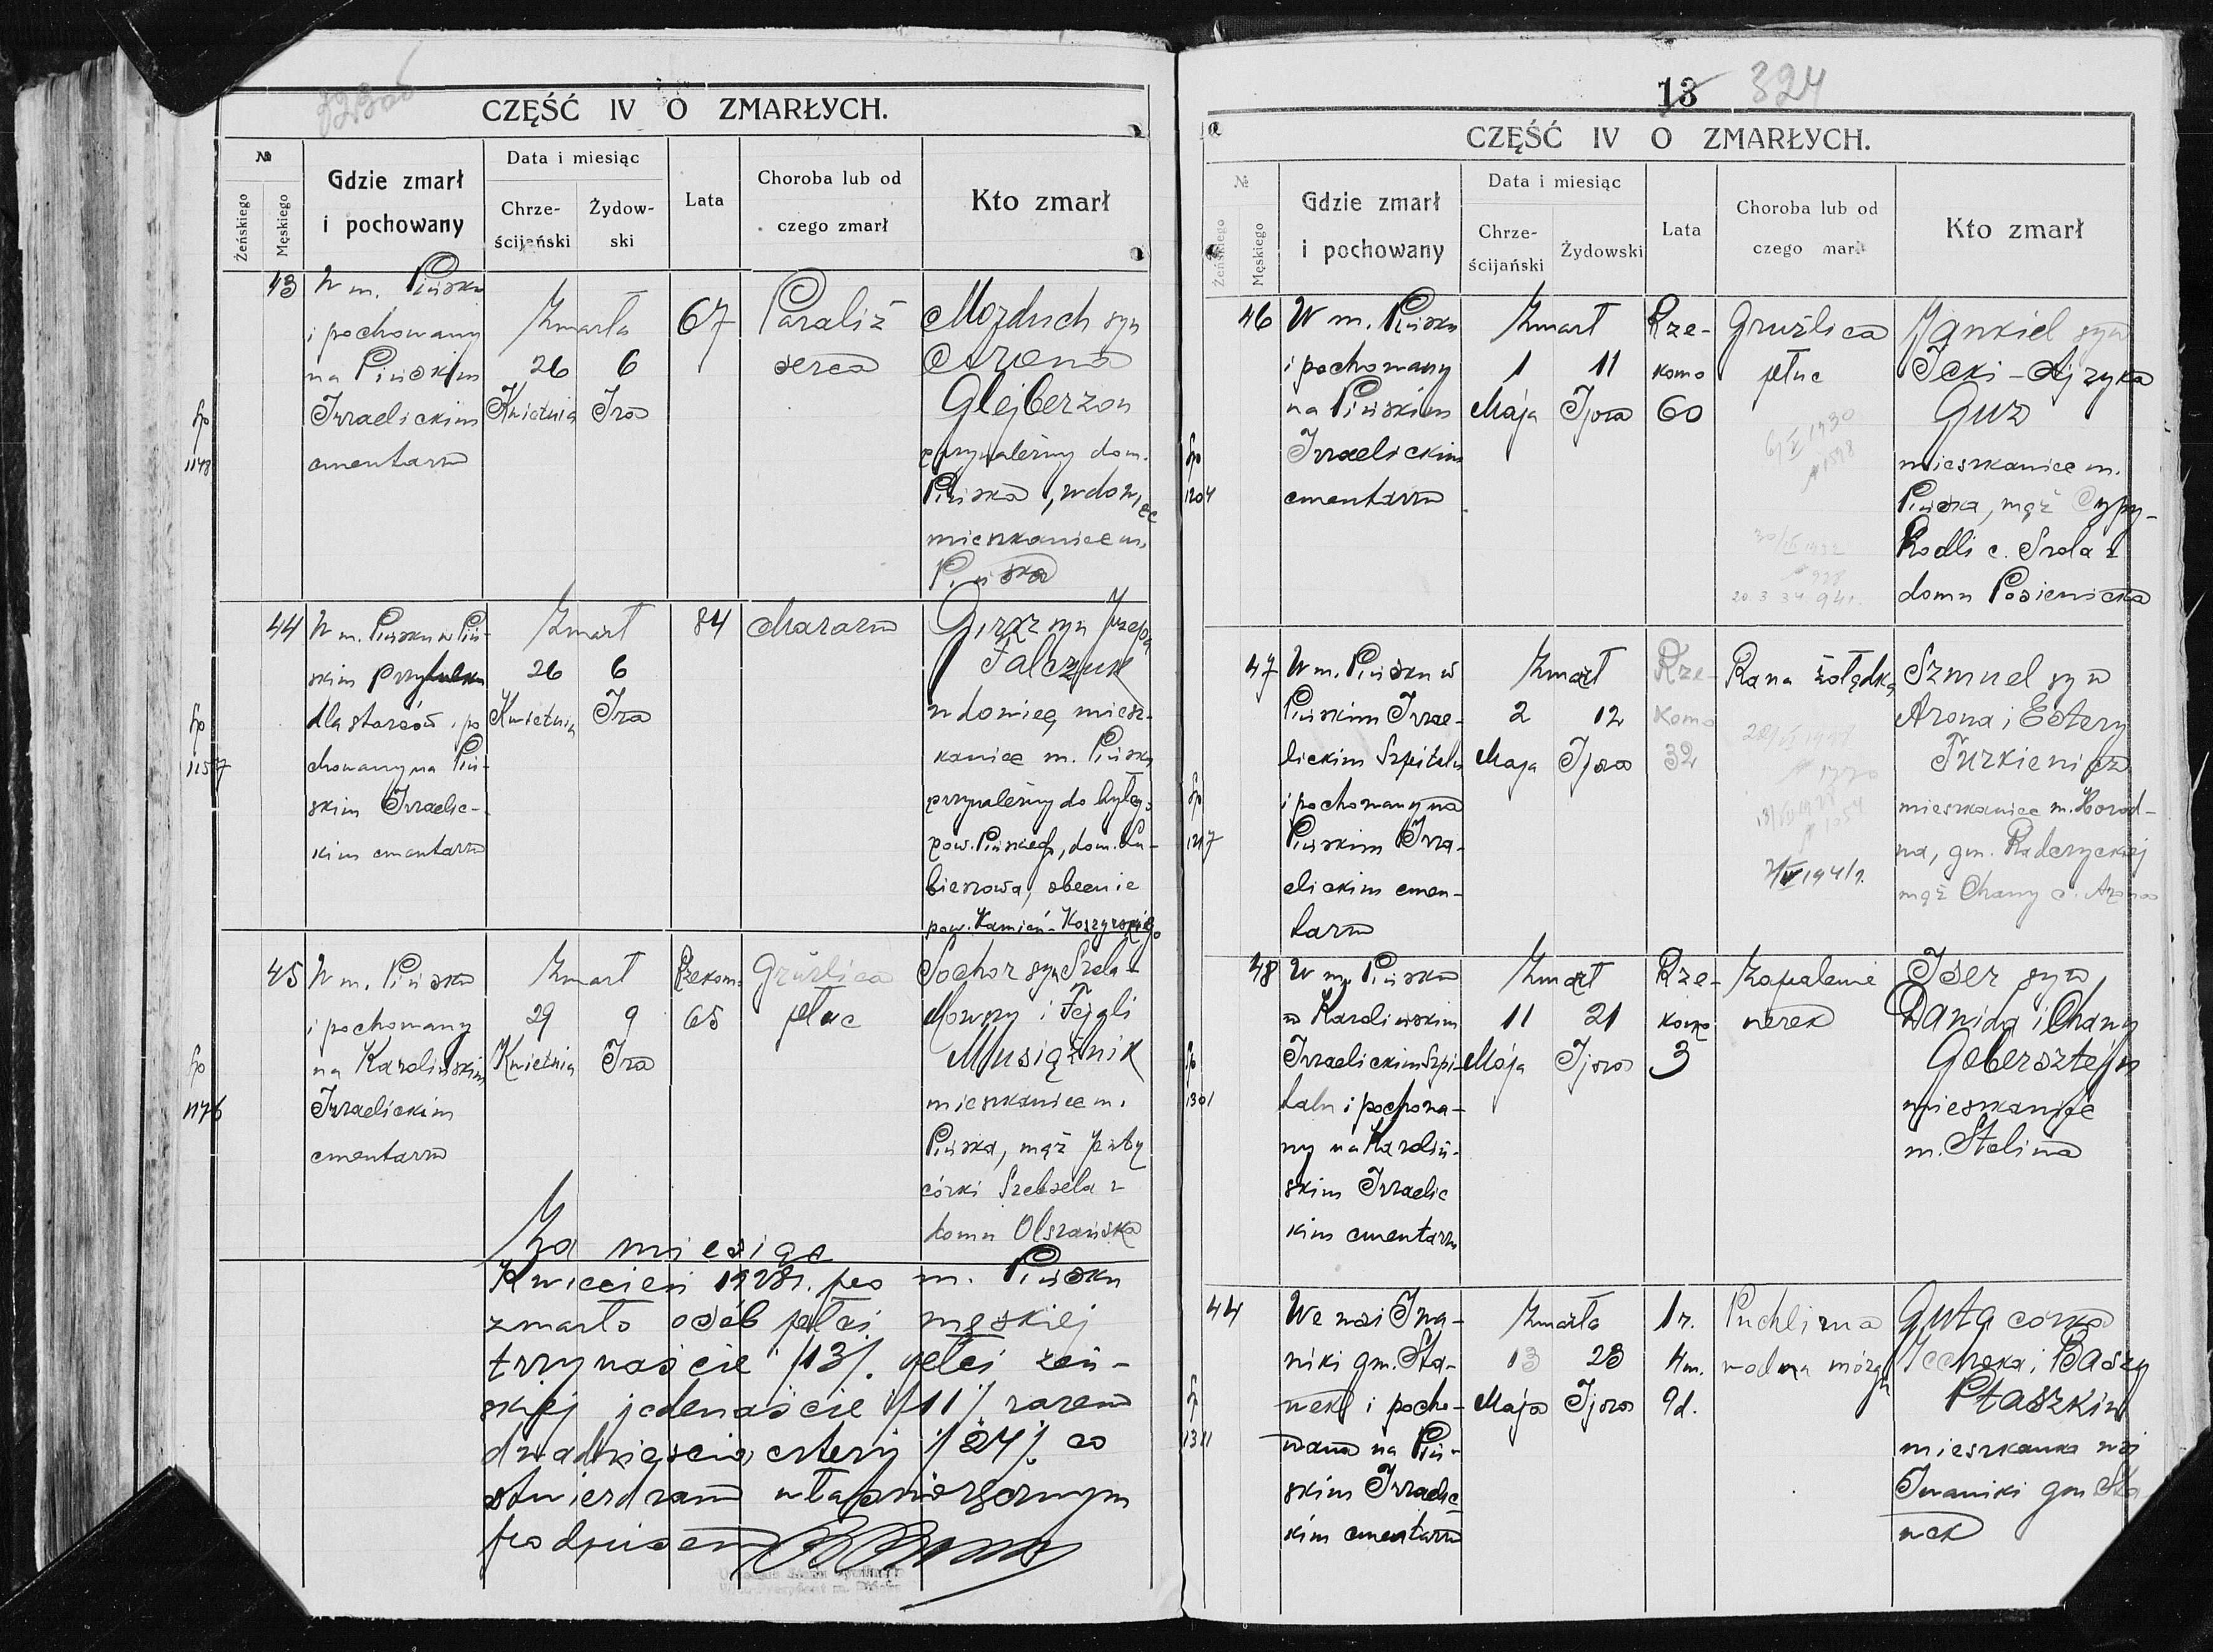 CZĘŚĆ IV O ZMARŁYCH.
№
Żeńskiego
Męskiego
Gdzie zmarł
i pochowany
Data i miesiąc
Chrze-
ścijański
Żydow-
ski
Lata
Choroba lub od
czego zmarł
Kto zmarł
43
W m. Pińsku
i pochowany
na Pińskim
Izraelickim
cmentarzu
1148
Zmarła
26 6
Kwietnia Ira
67
Paraliż
serca
Mozduch syn
Arona
Glejberzon
przynależny dom.
Pińska, wdowiec
mieszkaniec m.
Pińska
44
W m. Pińsku w Piń-
skim przytułku
dla starców i po
chowany na Piń-
skim Izraelic-
kim cmentarzu
1157
Zmarł
26 6
Kwietnia Ira
84
Marazm
Girsz syn Józefa
Falczuk
wdowiec, miesz-
kaniec m. Pińska
przynależny do byłego
pow. Pińskiego, dom. Lu-
bieszowa, obecnie
pow. Kamień-Koszyrskiego
45
W m. Pińsku
i pochowany
na Karolińskim
Izraelickim
cmentarzu
1176
Zmarł
29 9
Kwietnia Ira
Rzekom.
65
Gruźlica
płuc
Sochor syn Szela-
Mowszy i Fejgli
Musiążnik
mieszkaniec m.
Pińska, mąż
córki Szebsela z
domu Olszańska
Za miesiąc
Kwiecień 1928r. po m. Pińsku
zmarło osób płci męskiej
trzynaście /13/. płci żeń-
skiej jedenaście /11/ razem
dwadzieścia cztery /24/. co
stwierdzam własnoręcznym
podpisem
13 324
CZĘŚĆ IV O ZMARŁYCH.
№
Żeńskiego
Męskiego
Gdzie zmarł
i pochowany
Data i miesiąc
Chrze-
ścijański
Żydowski
Lata
Choroba lub od
czego zmarł
Kto zmarł
46
W m. Pińsku
i pochowany
na Pińskim
Izraelickim
cmentarzu
1204
Zmarł
1 11
Maja Ijora
Rze-
komo
60
Gruźlica
płuc
Jankiel syn
Icki-Ajzyka
Guz
mieszkaniec m.
Pińska, mąż Cypy-
Rodli c. Srola z
domu Posienicka
47
W m. Pińsku w
Pińskim Izrae-
lickim Szpitalu
i pochowany na
Pińskim Izra-
elickim cmen-
tarzu
1217
Zmarł
2 12
Maja Ijora
Rze-
komo
32
Rana żołądka
Szmuel syn
Arona i Estery
Turkienicz
mieszkaniec m. Horod-
na, gm. Radczyckiej
mąż Chany c. Arona
48
W m. Pińsku
w Karolińskim
Izraelickim Szpi-
talu i pochowa-
ny na Karoliń-
skim Izraelic
kim cmentarzu
1301
Zmarł
11 21
Maja Ijora
Rze-
komo
3
Zapalenie
nerek
Iser syn
Dawida i Chany
Gobersztejn
mieszkaniec
m. Stolina
44
We wsi Iwa-
niki gm. Sta-
wek i pocho-
wana na Piń-
skim Izraelic
kim cmentarzu
1311
Zmarła
13 23
Maja Ijora
1r.
4m.
9d.
Puchlizna
wodna mózgu
Guta córka
Icchoka i Baszy
Ptaszkin
mieszkanka wsi
Iwaniki gm Sta
wek